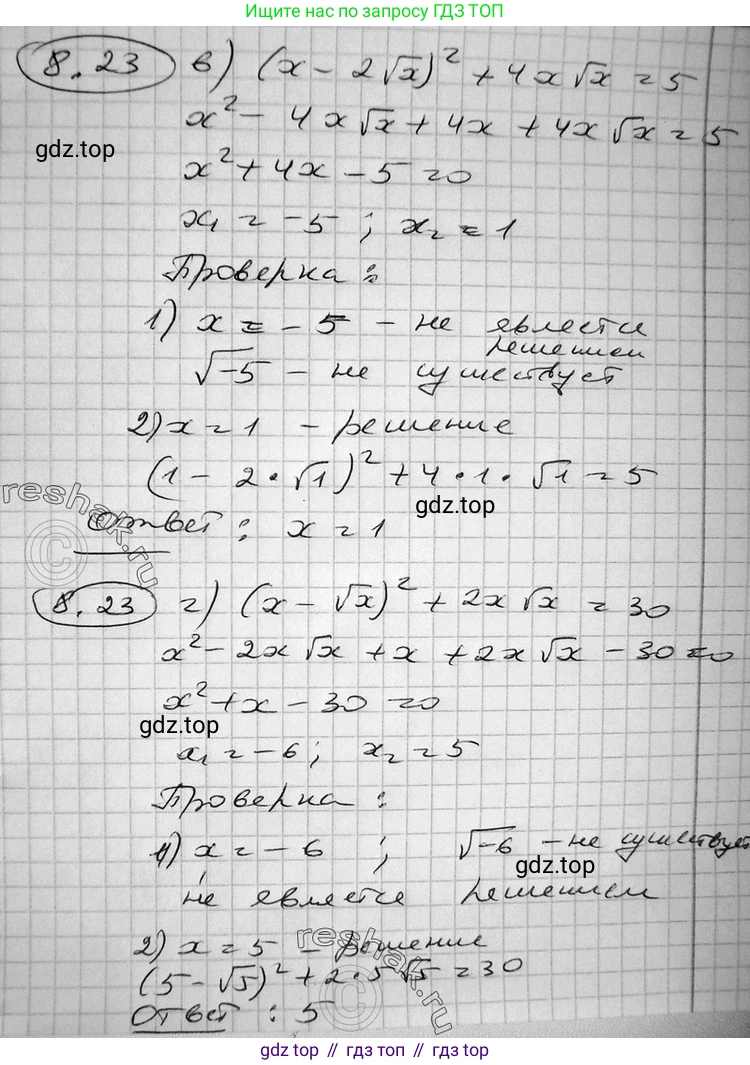 Ищите нас по запросу ГДЗ ТОП
8.23 в) (x - 2√x)² + 4x√x = 5
x² - 4x√x + 4x + 4x√x = 5
gdz.top
x² + 4x - 5 = 0
x₁ = -5 ; x₂ = 1
Проверка :
1) x = -5 - не является
решением
√-5 - не существует
2) x = 1 - решение
(1 - 2·√1)² + 4·1·√1 = 5
gdz.top
reshak.ru
©
Ответ : x = 1
8.23 г) (x - √x)² + 2x√x = 30
x² - 2x√x + x + 2x√x - 30 = 0
x² + x - 30 = 0
gdz.top
x₁ = -6 ; x₂ = 5
Проверка :
1) x = -6 ; √-6 - не существует
gdz.top
не является решением
2) x = 5 - решение
reshak.ru
©
(5 - √5)² + 2·5√5 = 30
Ответ : 5
gdz top // гдз топ // gdz top